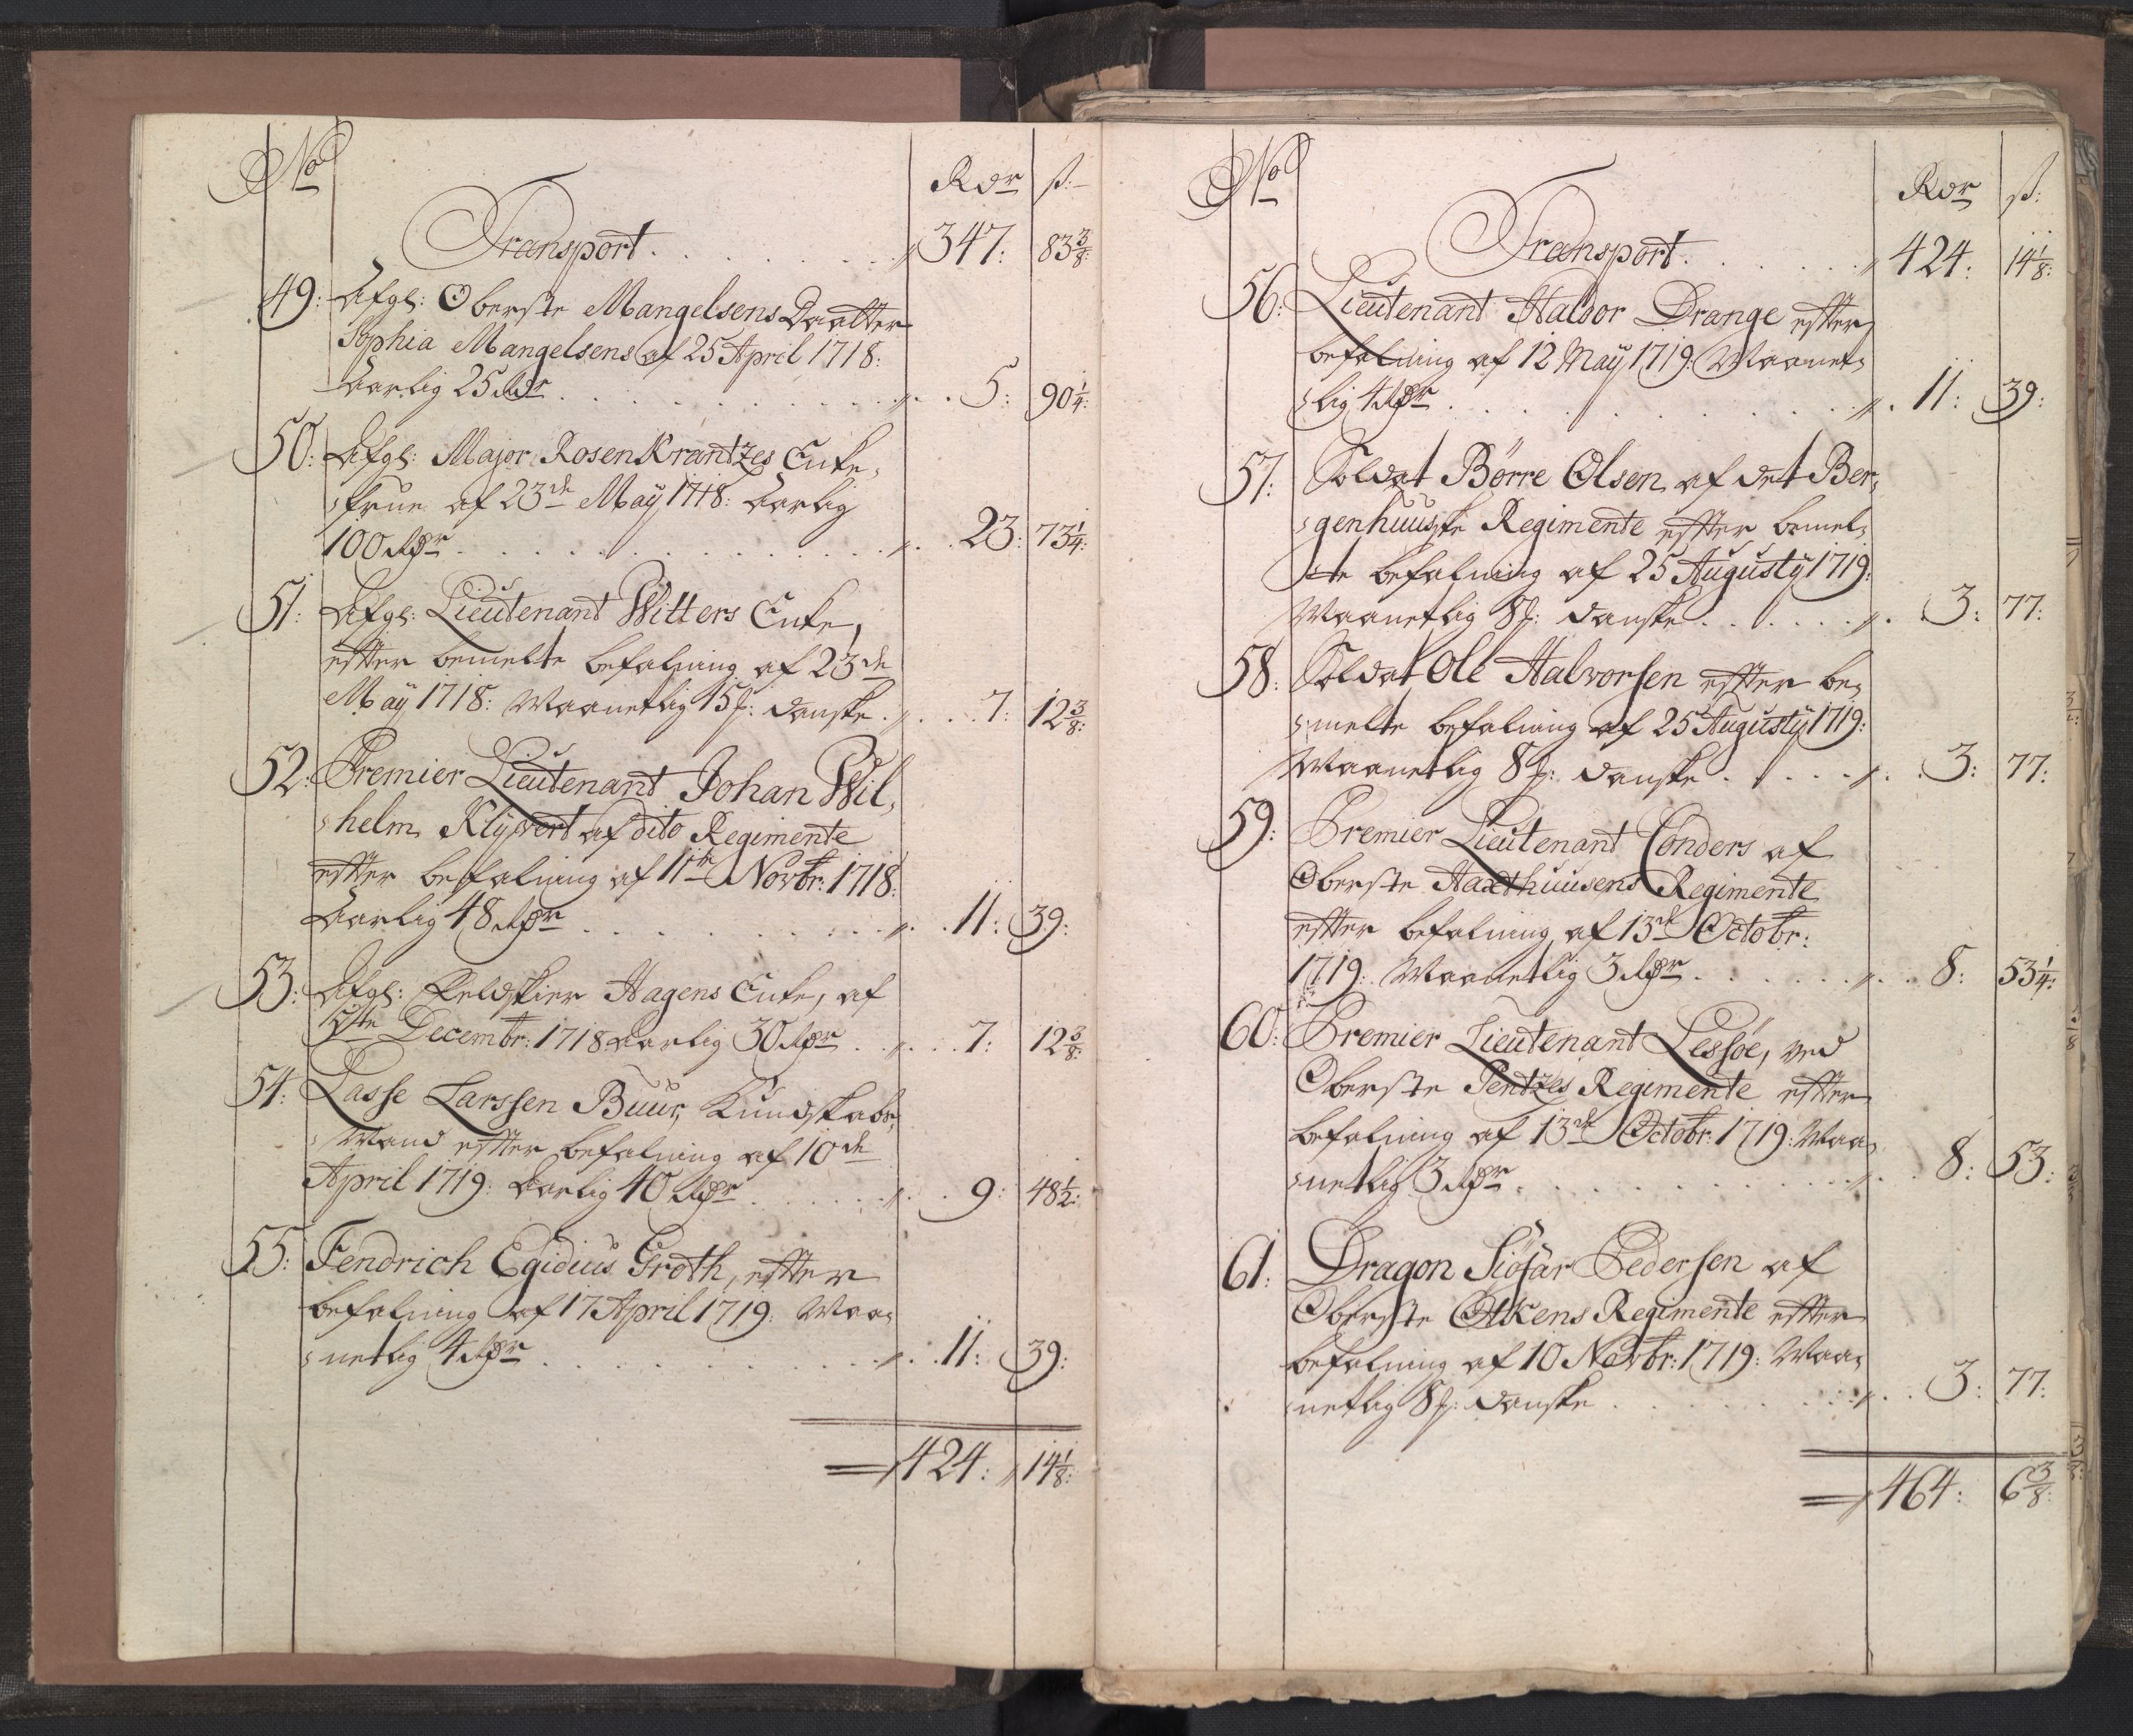 No
Rdr ß:
Transport. 347: 83 3/8:
49: Afgl: Oberste Mangelsens Daatter
Sophia Mangelsens af 25 April 1718:
Aarlig 25 Rdr 5: 90 1/4:
50: Afgl: Major Rosenkrantzes Enke,
frue af 23de Maÿ 1718: Aarlig
100 Rdr 23: 73 1/4:
51: Afgl: Lieutenant Witters Enke,
efter bemelte befalning af 23de
Maÿ 1718: Maanetlig 15 ß: danske 7: 12 3/8:
52: Premier Lieutenant Johan Wil,
helm Klÿwert af dito Regimente
efter befalning af 11te Novbr: 1718:
Aarlig 48 Rdr 11: 39:
53: Afgl: Feldskier Hagens Enke, af
5te Decembr: 1718 Aarlig 30 Rdr 7: 12 3/8:
54: Lasse Larssen Buur, Kundskabs,
Mand efter befalning af 10de
April 1719: Aarlig 40 Rdr 9: 48 1/2:
55: Fendrich Egidius Groth, efter
befalning af 17 April 1719: Maa,
netlig 4 Rdr 11: 39:
424: 14 1/8:
No
Rdr ß:
Transport. 424: 14 1/8:
56: Lieutenant Halvor Drange efter
befalning af 12 Maÿ 1719: Maanet,
lig 4 Rdr 11: 39:
57: Soldat Börre Olsen af det Ber,
genhuuske Regimente efter bemel,
te befalning af 25 Augustÿ 1719:
Maanetlig 8 ß: danske 3: 77:
58: Soldat Ole Halvorsen efter be,
melte befalning af 25 Augustÿ 1719:
Maanetlig 8 ß: danske 3: 77:
59: Premier Lieutenant Conders af
Oberste Haxthuusens Regimente
efter befalning af 13de Octobr:
1719: Maanetlig 3 Rdr 8: 53 1/4:
60: Premier Lieutenant Lessöe, ved
Oberste Pentzes Regimente efter
befalning af 13de Octobr: 1719: Maa,
netlig 3 Rdr 8: 53:
61: Dragon Siöfar Pedersen af
Oberste Otkens Regimente efter
befalning af 10 Novbr: 1719: Maa,
netlig 8 ß: danske 3: 77:
464: 6 3/8: